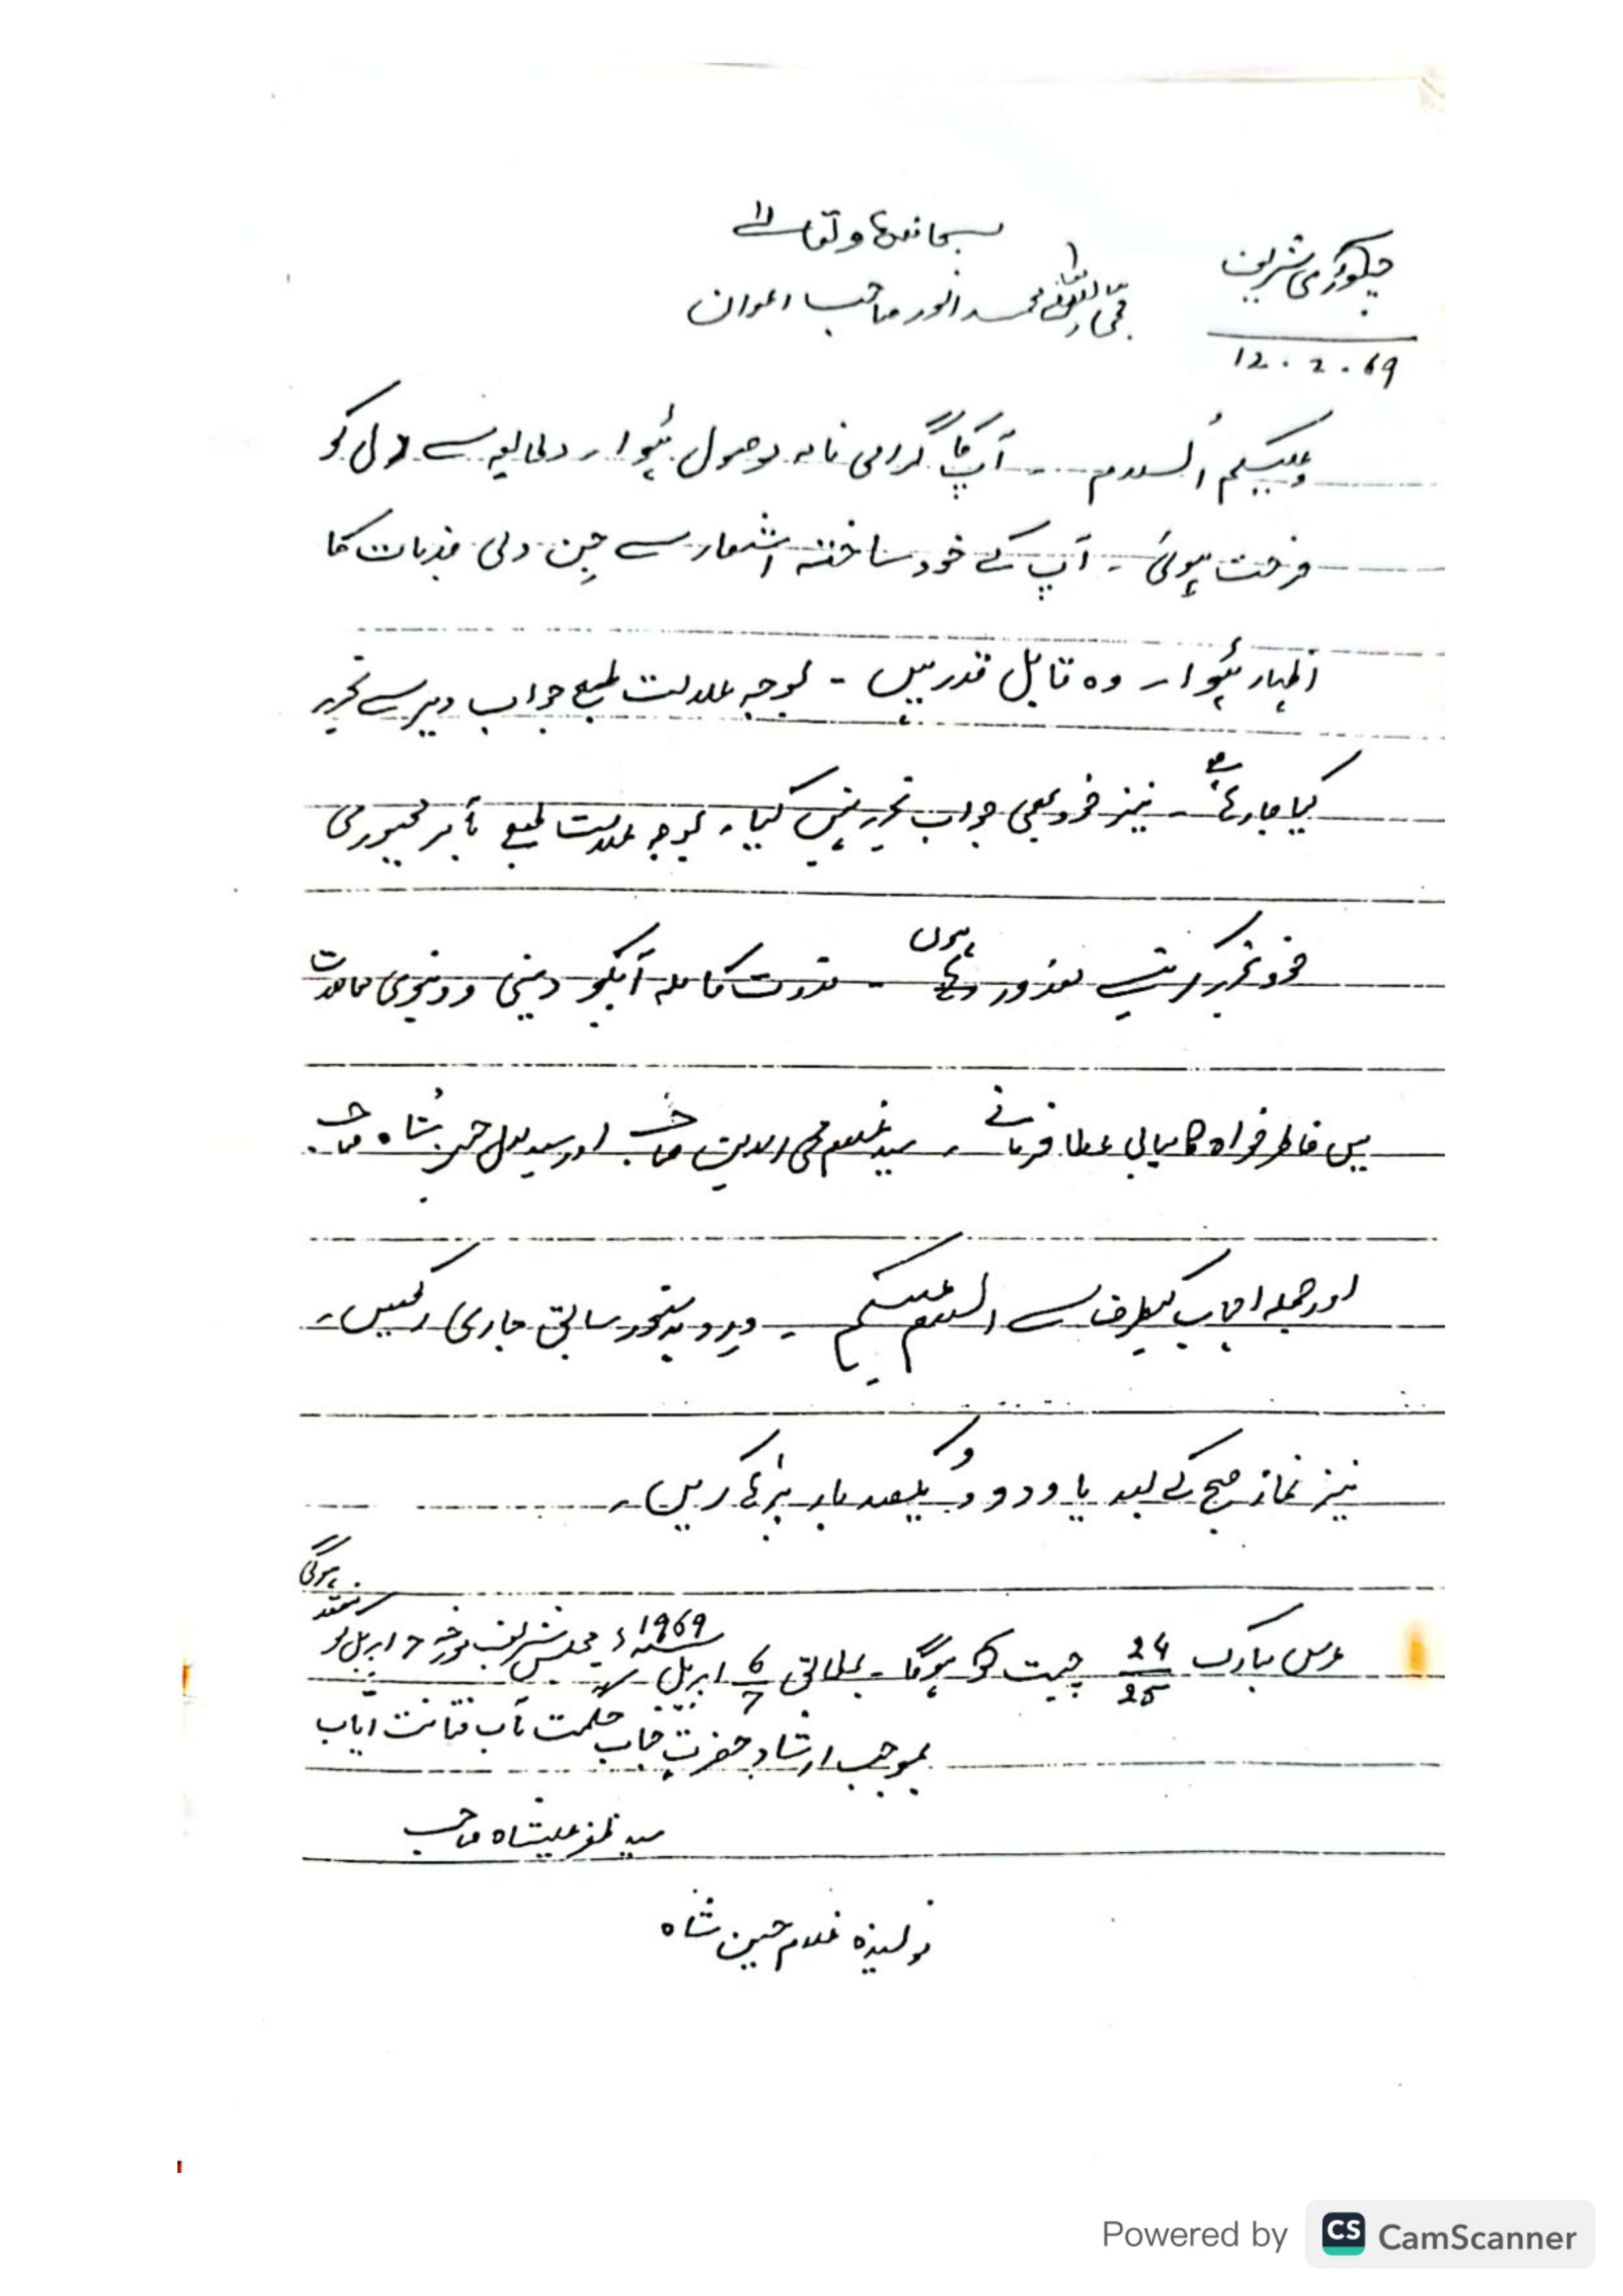 سبحانہ و تعالےٰ
چکوڑی شریف
محمد انور صاحب اعوان
12.2.69
وعلیکم السلام -- آپ کا گرامی نامہ وصول ہُوا۔ مطالعہ سے دل کو
فرحت ہوئی۔ آپ کے خود ساختہ اشعار سے جِن دلی جذبات کا
اظہار ہُوا۔ وہ قابل قدر ہیں۔ بوجہ علالت طبع جواب دیر سے تحریر
کیا جا رہا ہے۔ نیز خود بھی جواب تحریر نہیں کیا۔ بوجہ علالت طبع بأمر مجبوری
خود تحریر کرنے سے معذور رہا ہوں۔ قدرت کاملہ آپکو دینی و دنیوی مقاصد
میں خاطر خواہ کامیابی عطا فرمائے۔ سید غلام محی الدین صاحب اور سید لعل حسین شاہ صاحب
اور جملہ احباب کیطرف سے السلام علیکم۔ وِرد بدستور سابق جاری رکھیں۔
نیز نماز صبح کے بعد یا ودود کو یکصد بار پڑہا کریں۔
عرس مبارک 24/25 چیت کو ہوگا۔ بمطابق 6/7 اپریل 1969ء مجلس شریف مورخہ 7 اپریل کو منعقد ہوگی
بموجب ارشاد حضرت جناب حکمت مآب
سید ظفر علیشاہ صاحب
نویسندہ غلام حسین شاہ
Powered by CS CamScanner